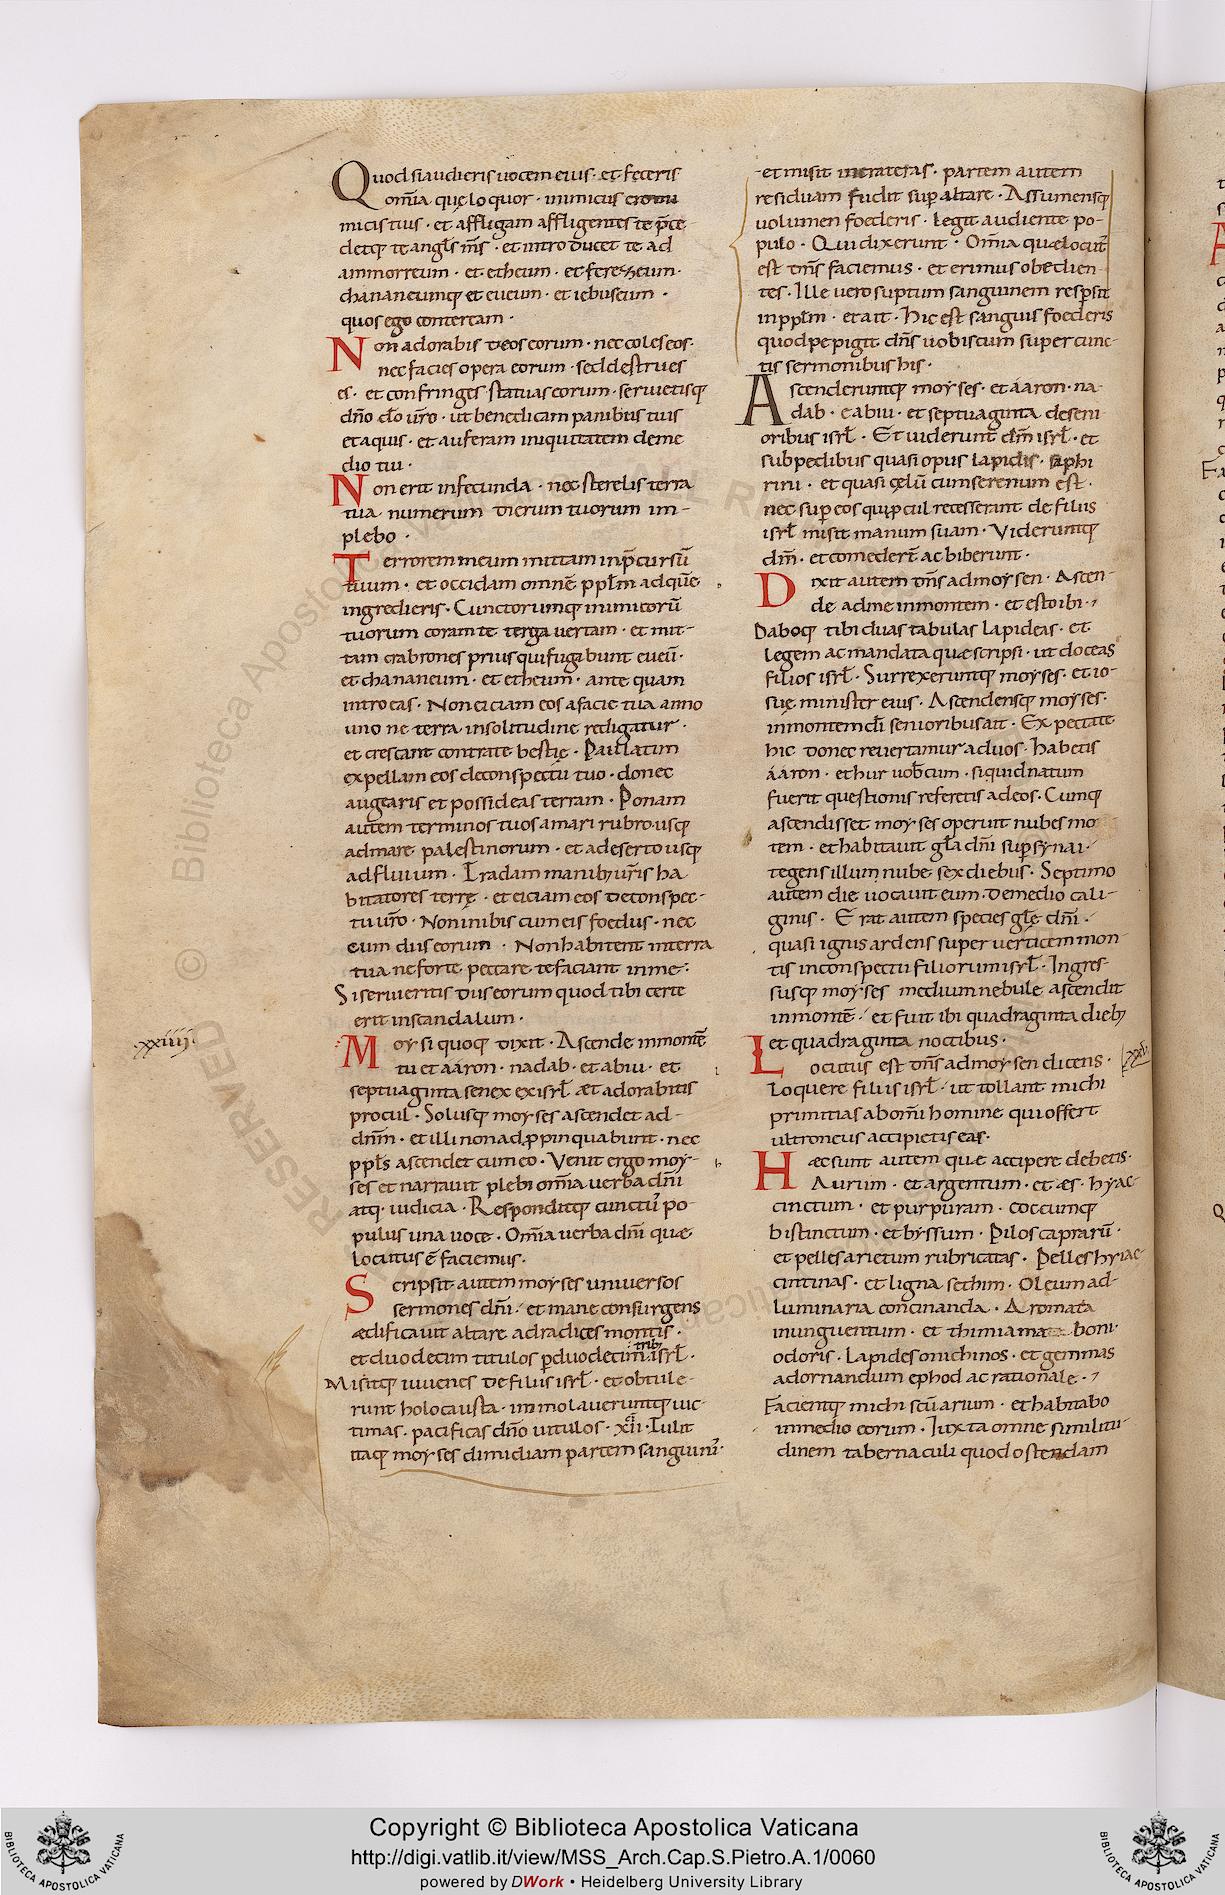 Quod siaudieris uocem eius · et feceris
om̄ia que loquor · inimicus ero ini
micis tuis · et affligam affligentes te p̄ce
detq; te angl̄s m̄s · et introducet te ad
ammorreum · et etheum · et ferezeum ·
chananeumq; et eueum · et iebuseum ·
quos ego conteram ·
Non adorabis deos eorum · nec coles eos ·
nec facies opera eorum · sed destrues
es · et confringes statuas eorum · seruietisq;
dn̄o dō ur̄o · ut benedicam panibus tuis
et aquis · et auferam iniquitatem de me
dio tui ·
Non erit infecunda · nec sterelis terra
tua numerum dierum tuorum im-
plebo ·
Terrorem meum mittam in p̄cursū
tuum · et occidam omnē ppl̄m ad quē
ingredieris · Cunctorumq; inimicorū
tuorum coram te terga uertam · et mit-
tam crabrones prius qui fugabunt eueū ·
et chananeum · et etheum · ante quam
introeas · Non eiciam eos a facie tua anno
uno ne terra in solitudine redigatur ·
et crescant contra te bestię · Paulatim
expellam eos de conspectu tuo · donec
augearis et possideas terram · Ponam
autem terminos tuos a mari rubro usq;
ad mare palestinorum · et a deserto usq;
ad fluuium · Tradam manib; ur̄is ha
bitatores terrę · et eiciam eos de conspec-
tu ur̄o · Non inibis cum eis foedus · nec
cum diis eorum · Non habitent in terra
tua ne forte peccare te faciant in me ·
Si seruieritis diis eorum quod tibi certe
erit in scandalum ·
·xxiiii·
Moysi quoq; dixit · Ascende in montē
tu et aáron · nadab · et abiu · et
septuaginta senex ex isrl̄ · æt adorabitis
procul · Solusq; moyses ascendet ad
dn̄m · et illi non adpropinquabunt · nec
ppl̄s ascendet cum eo · Venit ergo moy-
ses et narrauit plebi om̄ia uerba dn̄i
atq; iudicia · Responditq; cunctus po
pulus una uoce · Om̄ia uerba dn̄i que
locutus ē faciemus ·
Scripsit autem moyses uniuersos
sermones dn̄i · et mane consurgens
ædificauit altare ad radices montis ·
trib;
et duodecim titulos p̱ duodecim isrl̄ ·
Misitq; iuuenes de filiis isrl̄ · et obtule-
runt holocausta · immolaueruntq; uic-
timas · pacificas dn̄o uitulos · xii · Tulit
itaq; moyses dimidiam partem sanguinis ·
et misit in crateras · partem autem
residuam fudit sup̱ altare · Assumensq;
uolumen foederis · legit audiente po-
pulo · Qui dixerunt · Om̄ia quæ locut
est dn̄s faciemus · et erimus obedien-
tes · Ille uero suptum sanguinem respsit
in ppl̄m · et ait · Hic est sanguis foederis
quod pepigit dn̄s uobiscum super cunc-
tis sermonibus his ·
Ascenderuntq; moyses · et áaron · na-
dab · e abiu · et septuaginta de seni
oribus isrl̄ · Et uiderunt dm̄ isrl̄ · et
sub pedibus quasi opus lapidis · saphi
rini · et quasi cęlū cum serenum est ·
nec sup̱ eos qui p̱cul recesserant de filiis
isrl̄ misit manum suam · Videruntq;
dm̄ · et comedert̄ ac biberunt ·
Dixit autem dn̄s ad moysen · Ascen-
de ad me in montem · et esto ibi ·
Daboq; tibi duas tabulas lapideas · et
legem ac mandata quæ scripsi · ut doceas
filios isrl̄ · Surrexeruntq; moyses · et io-
suę minister eius · Ascendensq; moyses ·
in montem dī senioribus ait · Expectate
hic donec reuertamur ad uos · habetis
áaron · et hur uob̄cum · si quid natum
fuerit questionis referetis ad eos · Cumq;
ascendisset moyses operuit nubes mo
tem · et habitauit gl̄a dn̄i sup̱ synai ·
tegens illum nube sex diebus · Septimo
autem die uocauit eum de medio cali-
ginis · Erat autem species gl̄ę dn̄i ·
quasi ignis ardens super uerticem mon-
tis in conspectu filiorum isrl̄ · Ingres-
susq; moyses medium nebule ascendit
in montē · et fuit ibi quadraginta dieb;
et quadraginta noctibus ·
Locutus est dn̄s ad moysen dicens ·
xxv
Loquere filiis isrl̄ · ut tollant michi
primitias ab om̄i homine qui offert
ultroneus accipietis eas ·
Hæc sunt autem quæ accipere debetis ·
Aurum · et argentum · et æs · hyac-
cinctum · et purpuram · coccumq;
bistinctum · et byssum · Pilos caprarū ·
et pelles arietum rubricatas · Pelles hyiac-
cintinas · et ligna sethim · Oleum ad
luminaria concinanda · Aromata
in unguentum · et thimiama boni
odoris · Lapides onichinos · et gemmas
ad ornandum ephod ac rationale ·
Facientq; michi scūarium · et habitabo
in medio eorum · Iuxta omne similitu-
dinem tabernaculi quod ostendam
Copyright © Biblioteca Apostolica Vaticana
http://digi.vatlib.it/view/MSS_Arch.Cap.S.Pietro.A.1/0060
powered by DWork • Heidelberg University Library